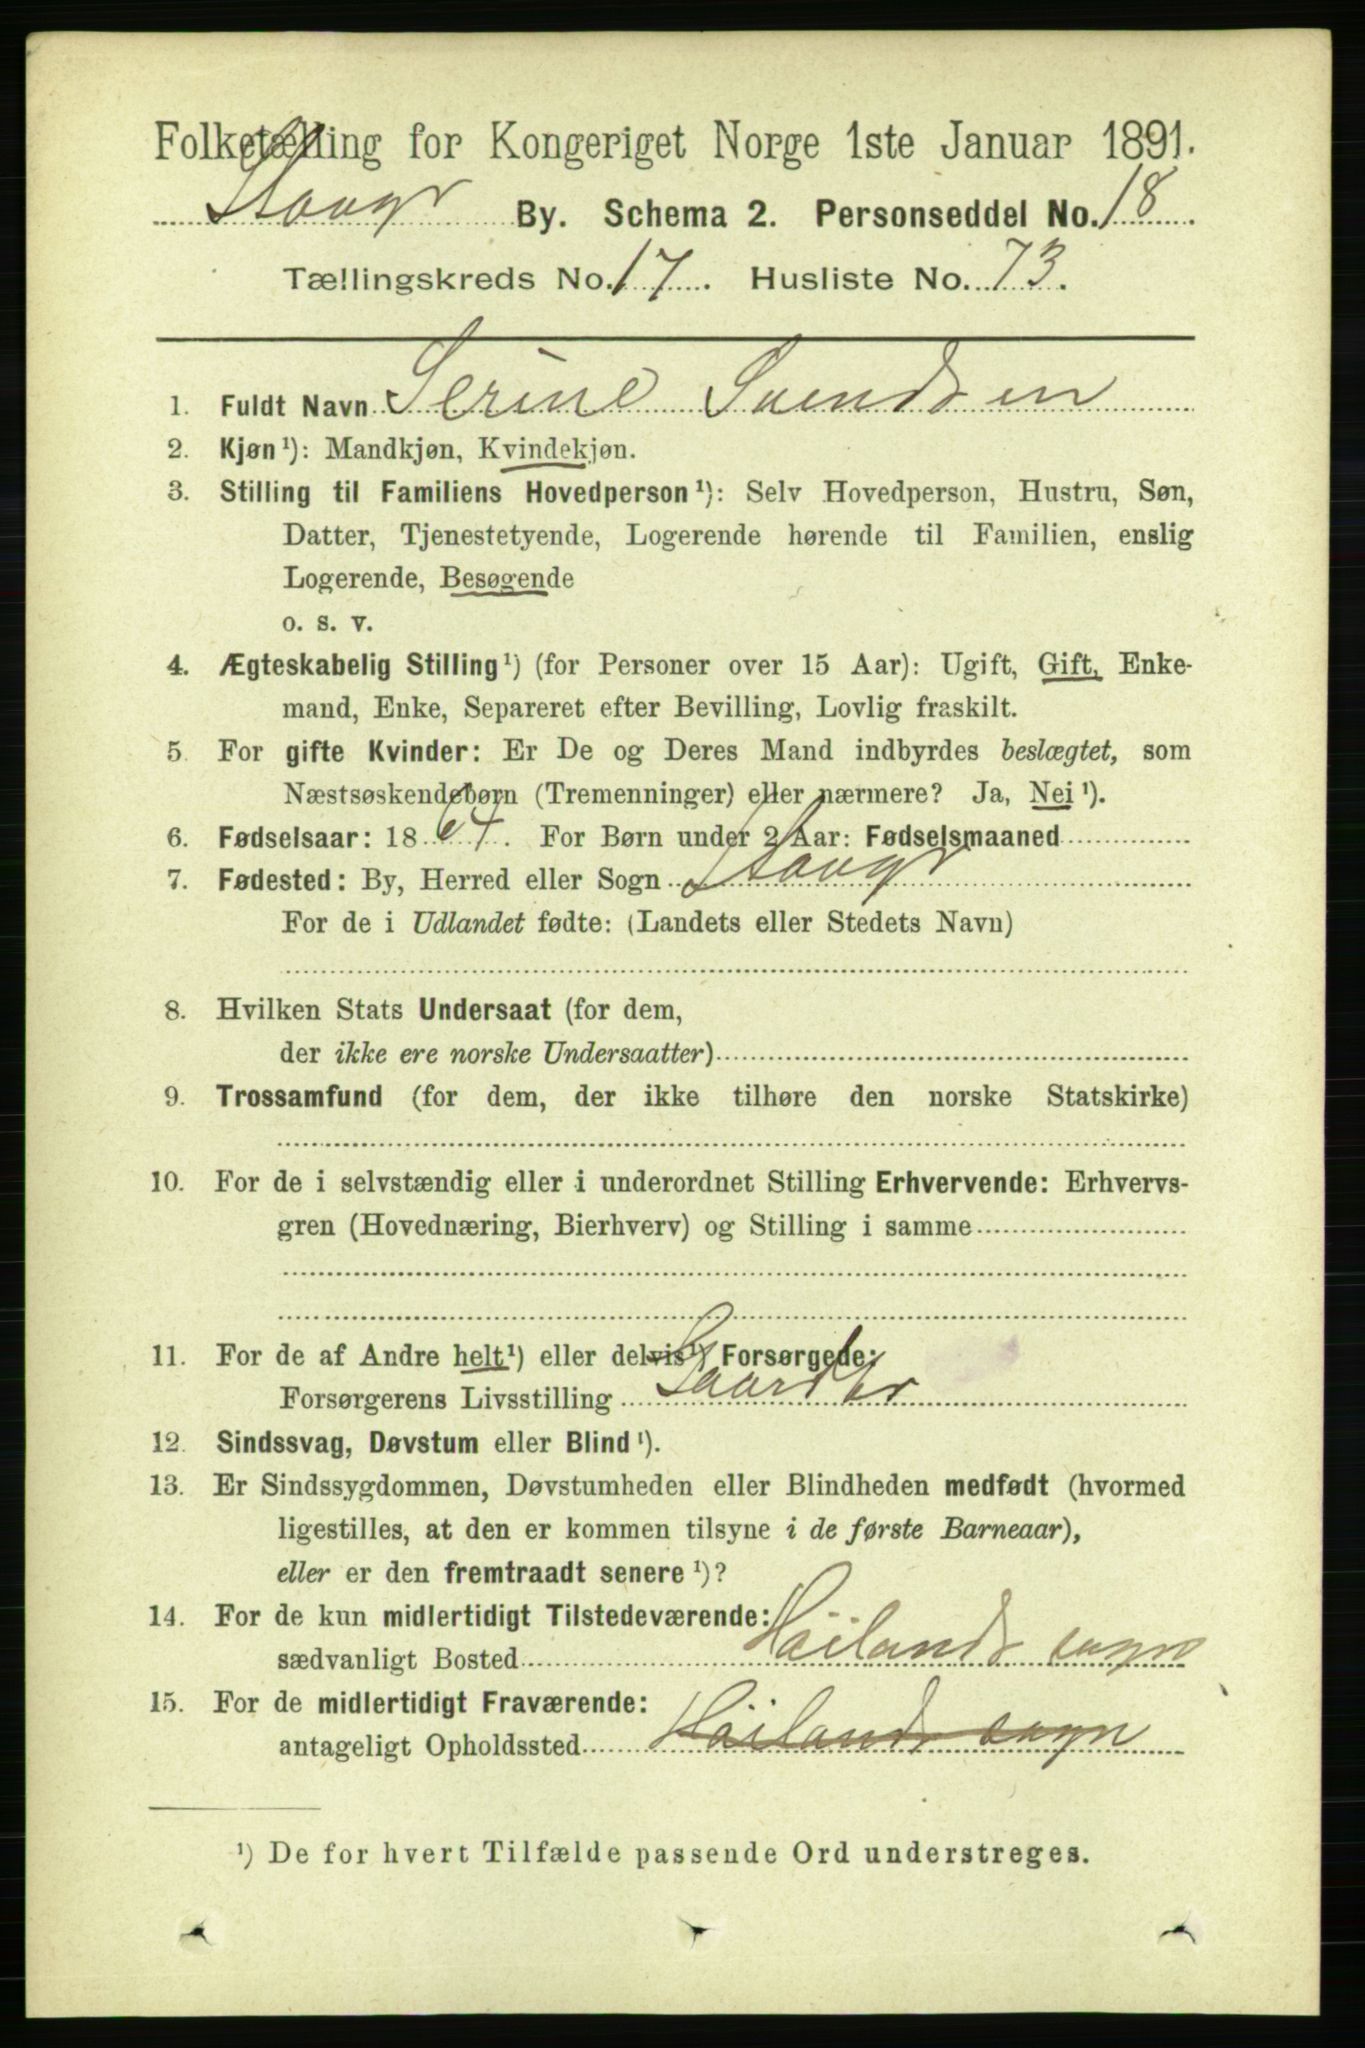 Folketælling for Kongeriget Norge 1ste Januar 1891.
Stavgr By. Schema 2. Personseddel No. 18.
Tællingskreds No. 17. Husliste No. 73.
1. Fuldt Navn Serine Svendsen
2. Kjøn ¹): Mandkjøn, Kvindekjøn.
3. Stilling til Familiens Hovedperson ¹): Selv Hovedperson, Hustru, Søn,
Datter, Tjenestetyende, Logerende hørende til Familien, enslig
Logerende, Besøgende
o. s. v.
4. Ægteskabelig Stilling ¹) (for Personer over 15 Aar): Ugift, Gift, Enke-
mand, Enke, Separeret efter Bevilling, Lovlig fraskilt.
5. For gifte Kvinder: Er De og Deres Mand indbyrdes beslægtet, som
Næstsøskendebørn (Tremenninger) eller nærmere? Ja, Nei ¹).
6. Fødselsaar: 1864. For Børn under 2 Aar: Fødselsmaaned
7. Fødested: By, Herred eller Sogn Stavgr
For de i Udlandet fødte: (Landets eller Stedets Navn)
8. Hvilken Stats Undersaat (for dem,
der ikke ere norske Undersaatter)
9. Trossamfund (for dem, der ikke tilhøre den norske Statskirke)
10. For de i selvstændig eller i underordnet Stilling Erhvervende: Erhvervs-
gren (Hovednæring, Bierhverv) og Stilling i samme
11. For de af Andre helt ¹) eller delvis ¹) Forsørgede:
Forsørgerens Livsstilling Gaardbr
12. Sindssvag, Døvstum eller Blind ¹).
13. Er Sindssygdommen, Døvstumheden eller Blindheden medfødt (hvormed
ligestilles, at den er kommen tilsyne i de første Barneaar),
eller er den fremtraadt senere ¹)?
14. For de kun midlertidigt Tilstedeværende:
sædvanligt Bosted Höilands sogn
15. For de midlertidigt Fraværende:
antageligt Opholdssted Höilands sogn
¹) De for hvert Tilfælde passende Ord understreges.